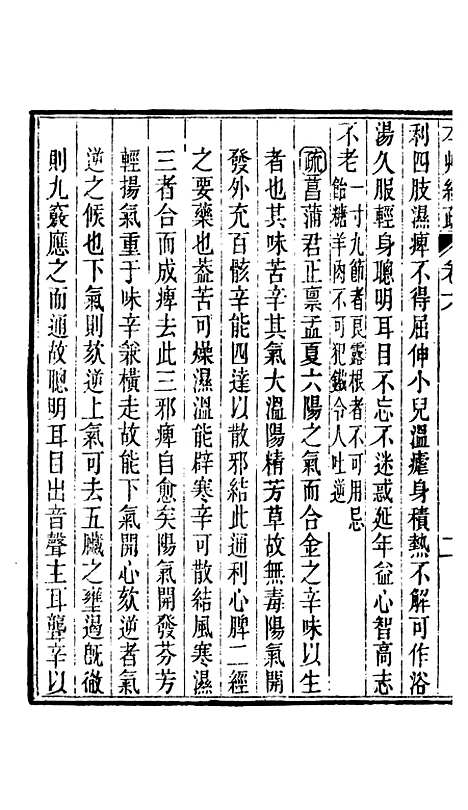 利四肢濕痺不得屈伸小兒溫瘧身積熱不解可作浴
湯久服輕身聰明耳目不忘不迷惑延年益心智高志
不老一寸九節者良露根者不可用忌
飴糖羊肉不可犯鐵令人吐逆
疏菖蒲君正禀孟夏六陽之氣而合金之辛味以生
者也其味苦辛其氣大溫陽精芳草故無毒陽氣開
發外充百骸辛能四達以散邪結此通利心脾二經
之要藥也葢苦可燥濕溫能辟寒辛可散結風寒濕
三者合而成痺去此三邪痺自愈矣陽氣開發芬芳
輕揚氣重于味辛兼橫走故能下氣開心欬逆者氣
逆之候也下氣則欬逆上氣可去五臟之壅遏旣徹
則九竅應之而通故聰明耳目出音聲主耳聾辛以